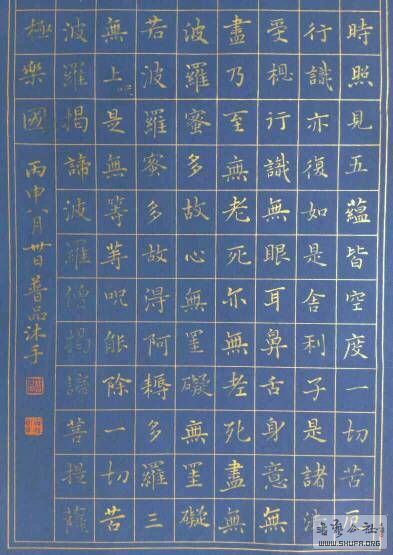 時照見五蘊皆空度一切苦厄
行識亦復如是舍利子是諸法
受想行識無眼耳鼻舌身意無
盡乃至無老死亦無老死盡無
波羅蜜多故心無罣礙無罣礙
若波羅蜜多故得阿耨多羅三
無上呪是無等等呪能除一切苦
波羅揭諦波羅僧揭諦菩提薩
極樂國
丙申八月卅日普品沐手
書藝公社
WWW.SHUFA.ORG